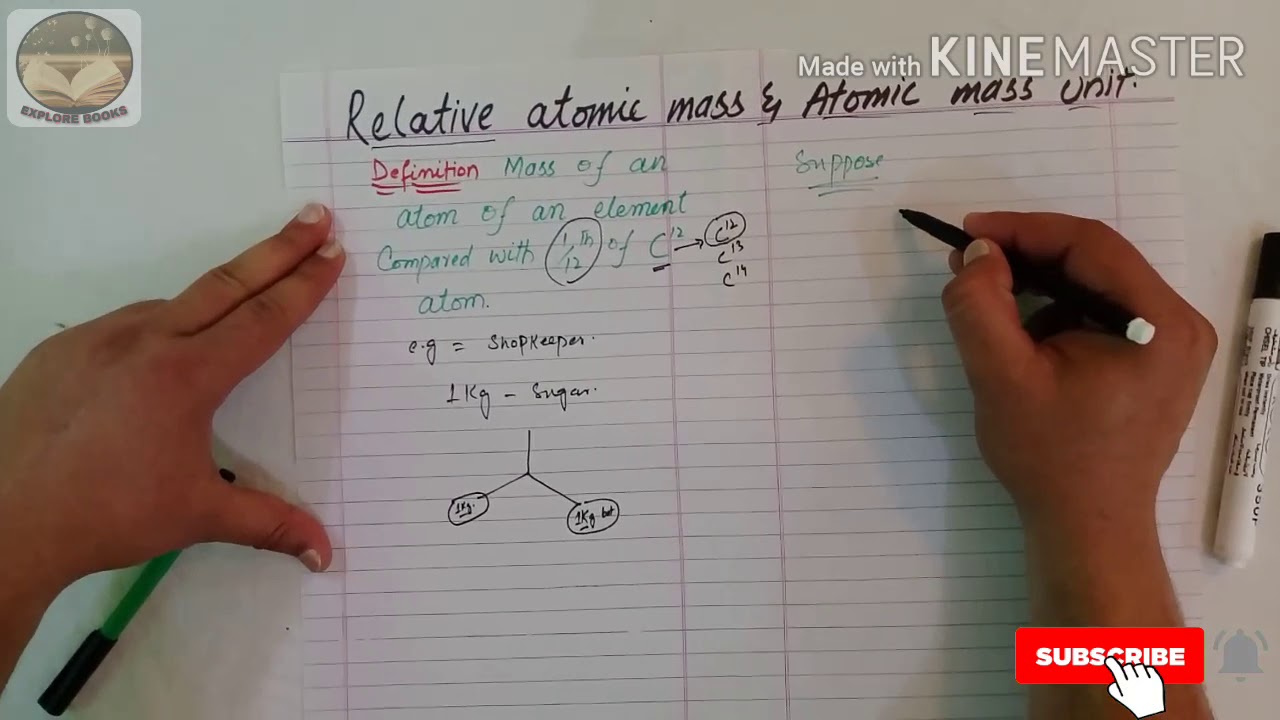 EXPLORE BOOKS
Made with KINEMASTER
Relative atomic mass & Atomic mass Unit.
Definition Mass of an
atom of an element
Compared with 1/12 th of C12 → C12
C13
C14
atom.
e.g = Shopkeeper.
1 Kg - Sugar.
1Kg.
1Kg bat
Suppose
SUBSCRIBE